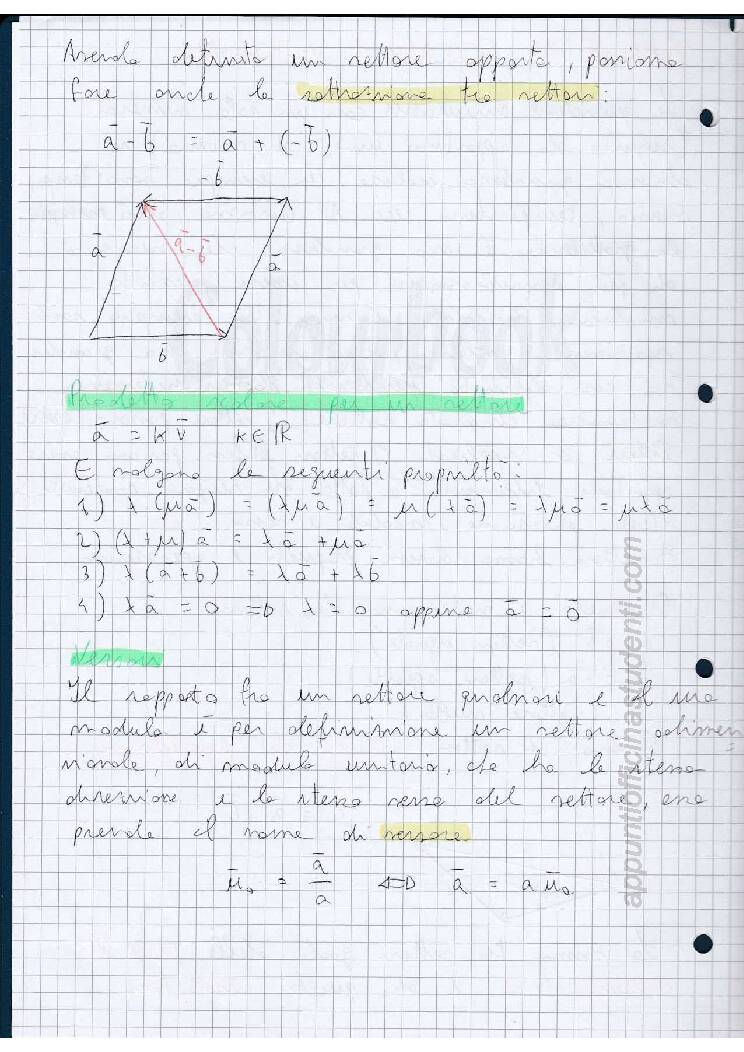 Avendo definito un vettore opposto, possiamo
fare anche la sottrazione tra vettori:
a̅ - b̅ = a̅ + (-b̅)
-b̅
a̅
a̅ - b̅
a̅
b̅
Prodotto scalare per un vettore
a̅ = k v̅ k ∈ ℝ
E valgono le seguenti proprietà:
1) λ (μa̅) = (λμa̅) = μ(λa̅) = λμa̅ = μλa̅
2) (λ+μ) a̅ = λa̅ + μa̅
3) λ(a̅+b̅) = λa̅ + λb̅
4) λa̅ = 0 => λ = 0 oppure a̅ = 0̅
Versori
Il rapporto tra un vettore qualsiasi e il suo
modulo è per definizione un vettore adimen
sionale, di modulo unitario, che ha la stessa
direzione e lo stesso verso del vettore, esso
prende il nome di versore
μ̅₀ = a̅/a <=> a̅ = a μ̅₀
appuntiofficinastudenti.com